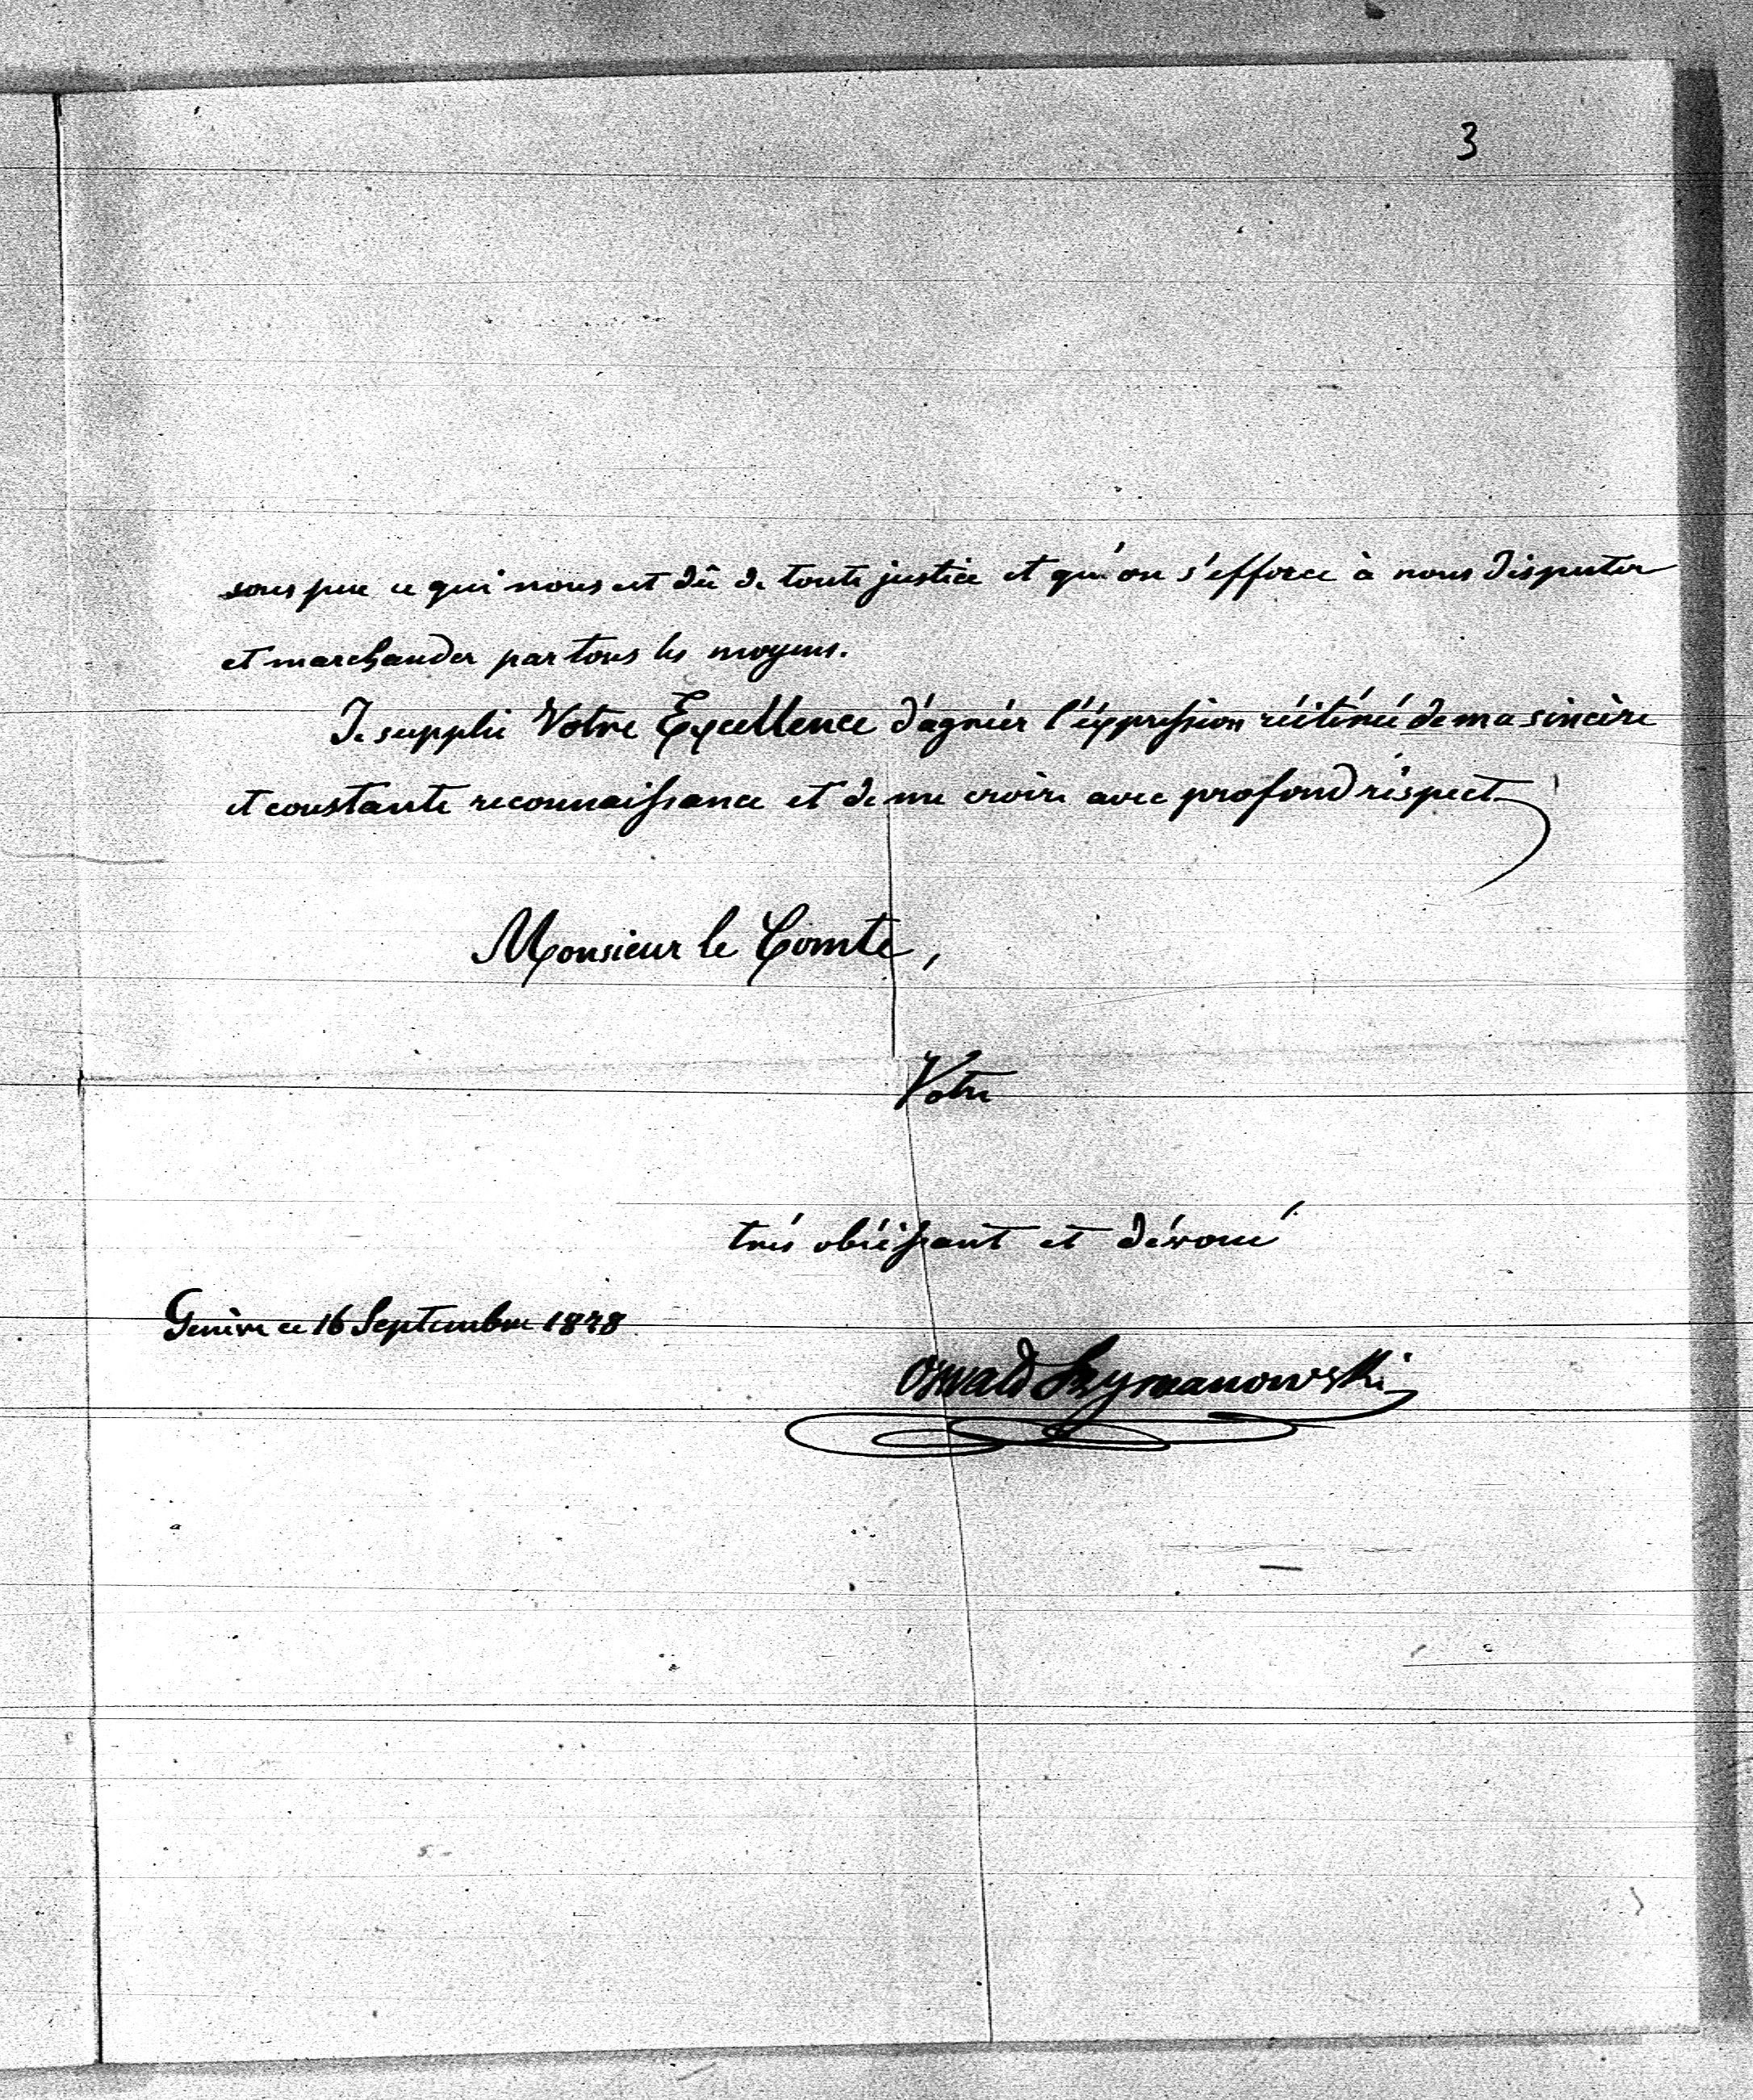 3
sous peu ce qui nous est dû de toute justice et qu'on s'efforce à nous disputer
et marchander par tous les moyens.
Je supplie Votre Excellence d'agréer l'éxpression réitérée de ma sincère
et constante reconnaissance et de me croire avec profond réspect
Monsieur le Comte,
Votre
très obéissant et dévoué
Genève ce 16 Septembre 1878
Oswald Szymanowski